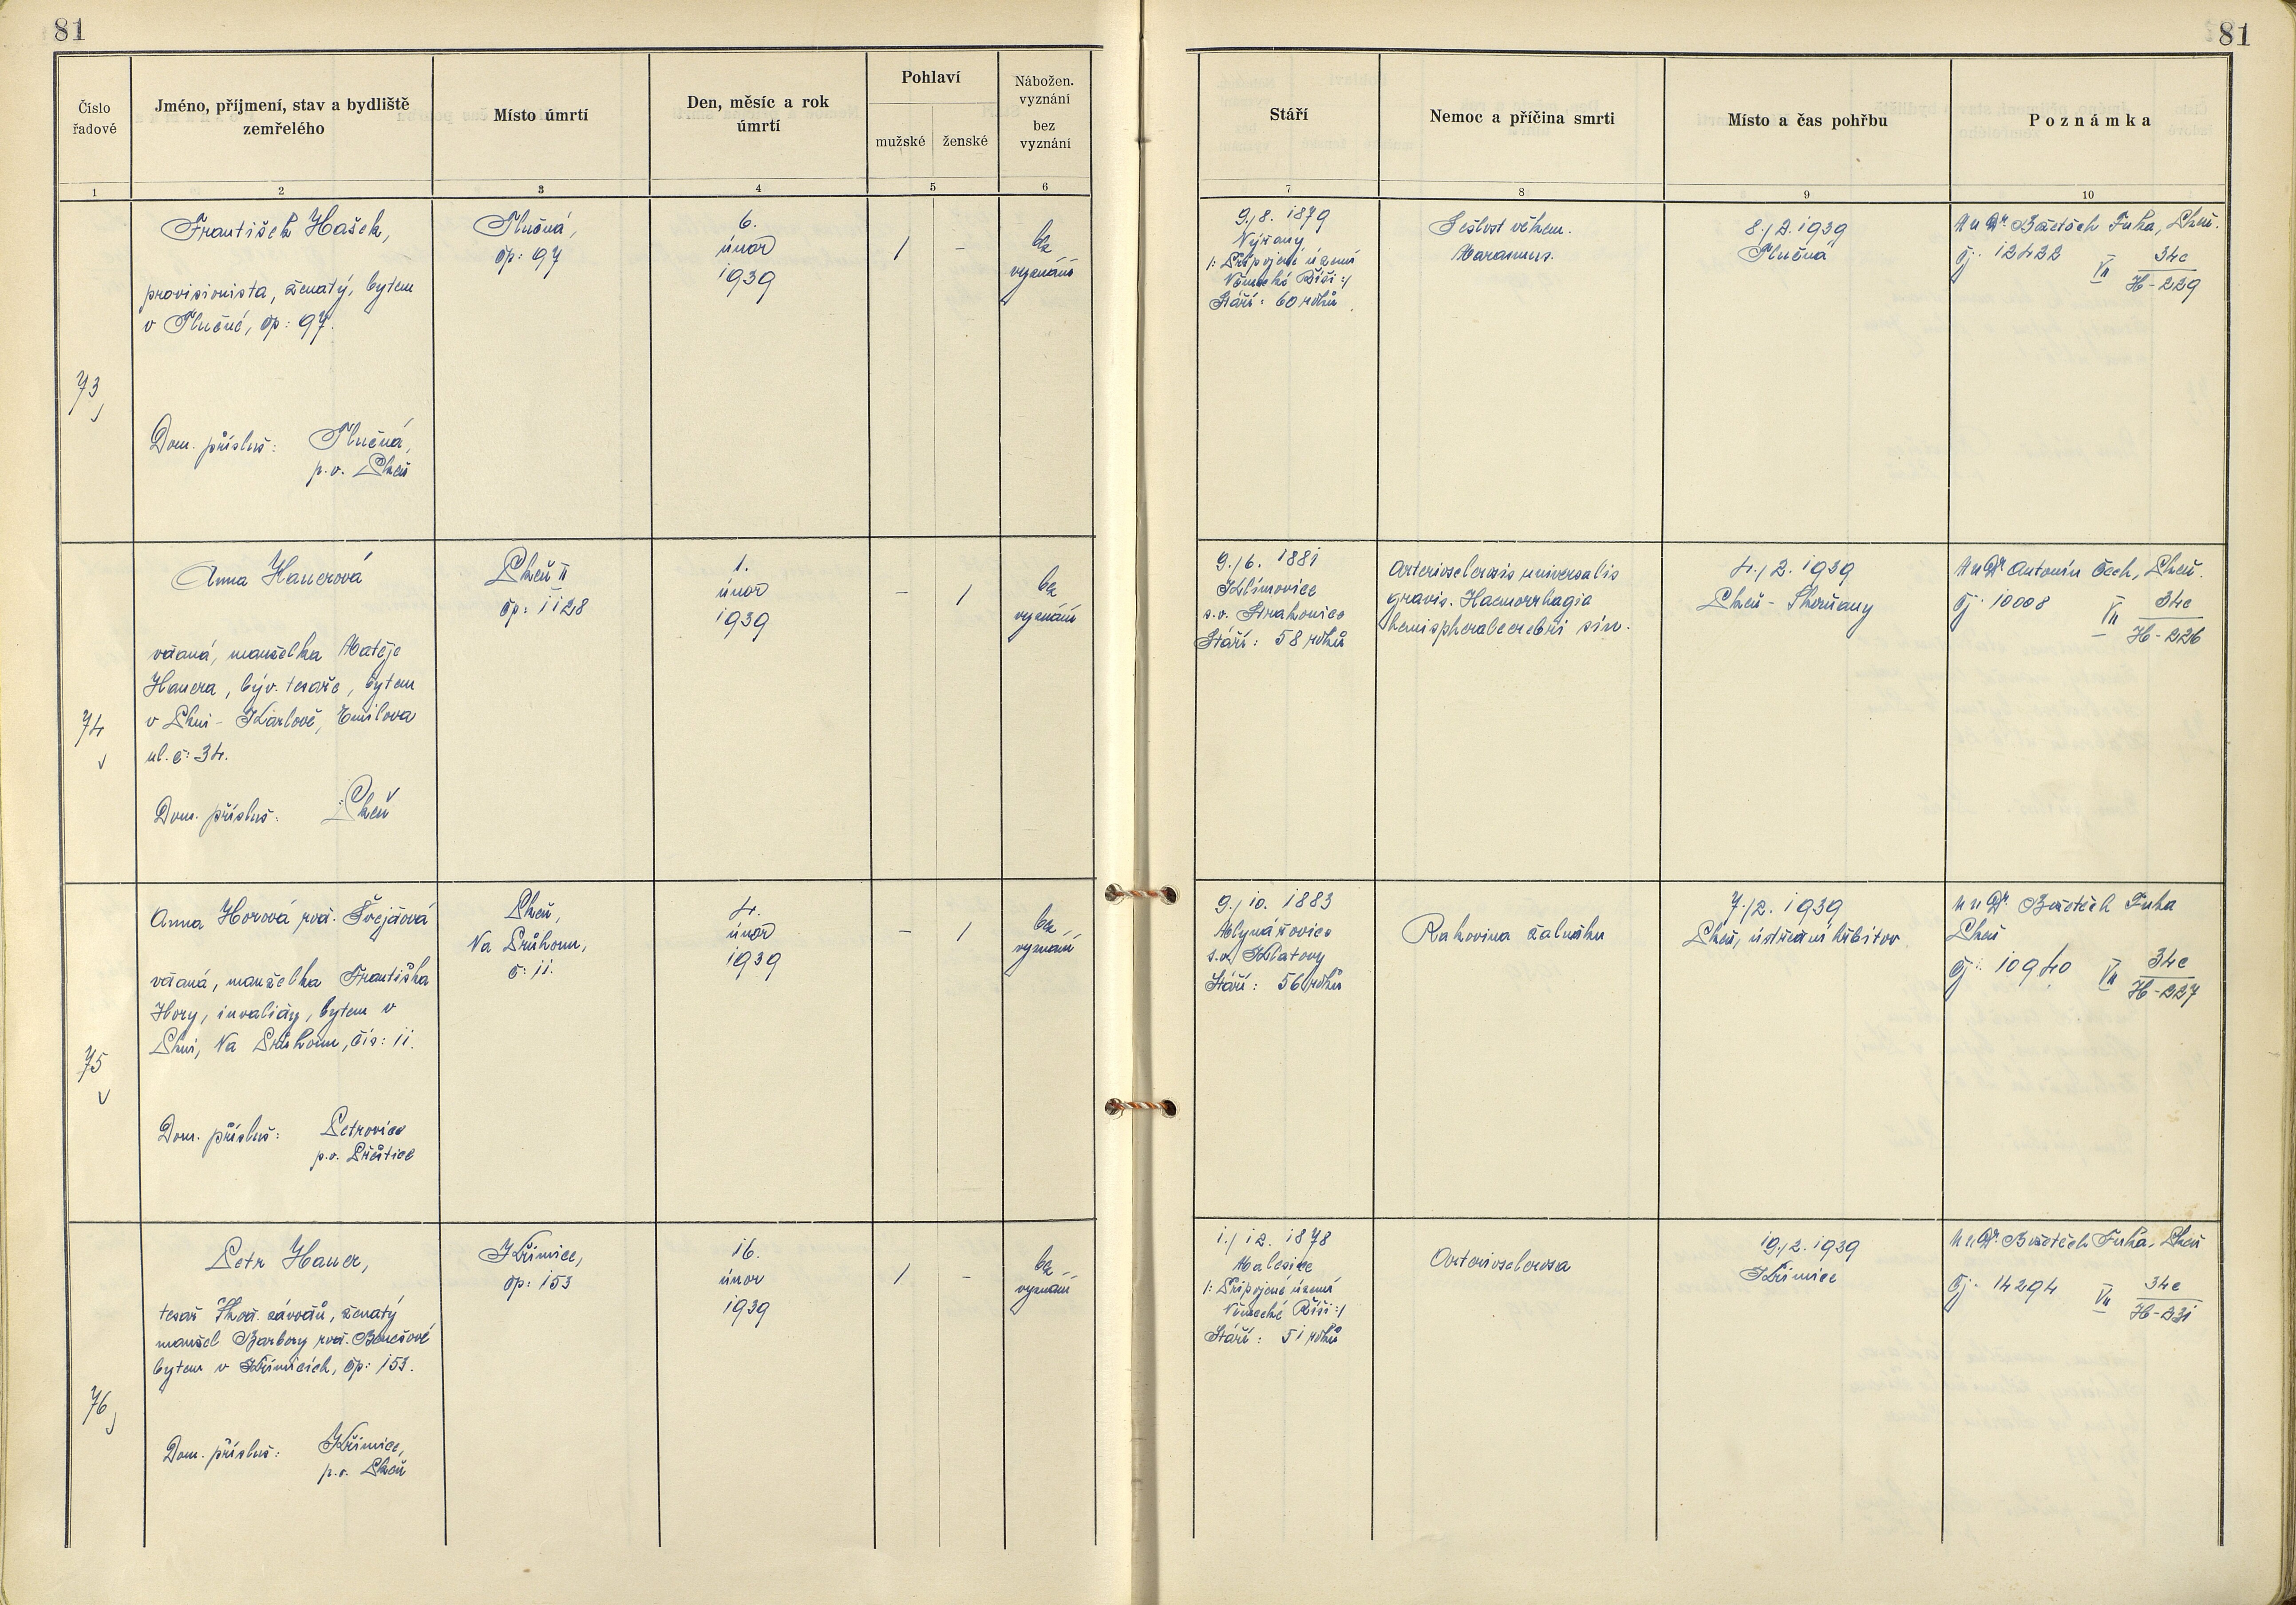 81
81
Číslo
řadové
Jméno, příjmení, stav a bydliště
zemřelého
Místo úmrtí
Den, měsíc a rok
úmrtí
Pohlaví
mužské
ženské
Nábožen.
vyznání
bez
vyznání
Stáří
Nemoc a příčina smrti
Místo a čas pohřbu
Poznámka
1
2
3
4
5
6
7
8
9
10
73
František Hašek,
provisionista, ženatý, bytem
v Tlučné, čp: 97.
Dom. přísluš: Tlučná,
p.o. Plzeň
Tlučná,
čp: 97
6.
únor
1939
/
-
bez
vyznání
9./8. 1879
Nýřany
/: Připojené území
Německé Říši :/
Stáří: 60 roků
Sešlost věkem.
Marasmus.
8./2. 1939
Tlučná
MuDr. Fuka, Plzeň.
čj. 12422 VII 34c
H-229
74
Anna Hauerová
vdaná, manželka Matěje
Hauera, býv. tesaře, bytem
v Plzni - Karlově, Emilova
ul. č: 34.
Dom. přísluš: Plzeň
Plzeň II
čp: 1128
1.
únor
1939
-
/
bez
vyznání
9./6. 1881
Klimovice
s.o. Strakonice
Stáří: 58 roků
Arteriosclerosis universalis
gravis. Haemorrhagia
hemispherae cerebri sin.
4./2. 1939
Plzeň - Skvrňany
MuDr. Antonín Čech, Plzeň.
čj. 10008 VII 34c
H-226
75
Anna Horová roz. Švejdová
vdaná, manželka Františka
Hory, invalidy, bytem v
Plzni, Na Průhonu, čís: 11.
Dom. přísluš: Petrovice
p.o. Přeštice
Plzeň,
Na Průhonu,
č: 11.
4.
únor
1939
-
/
bez
vyznání
9./10. 1883
Mlynářovice
s.o. Klatovy
Stáří: 56 roků
Rakovina žaludku
7./2. 1939
Plzeň, ústřední hřbitov
MuDr. Fuka
Plzeň
čj: 10940 VII 34c
H-227
76
Petr Hauer,
tesař Škod. závodů, ženatý
manžel Barbory roz. Benešové
bytem v Křimicích, čp: 153.
Dom. přísluš: Křimice,
p.o. Plzeň
Křimice,
čp: 153
16.
únor
1939
/
-
bez
vyznání
1./12. 1878
Malesice
/: Připojené území
Německé Říši :/
Stáří: 51 roků
Arteriosclerosa
19./2. 1939
Křimice
MuDr. Fuka, Plzeň
čj. 14294 VII 34c
H-231